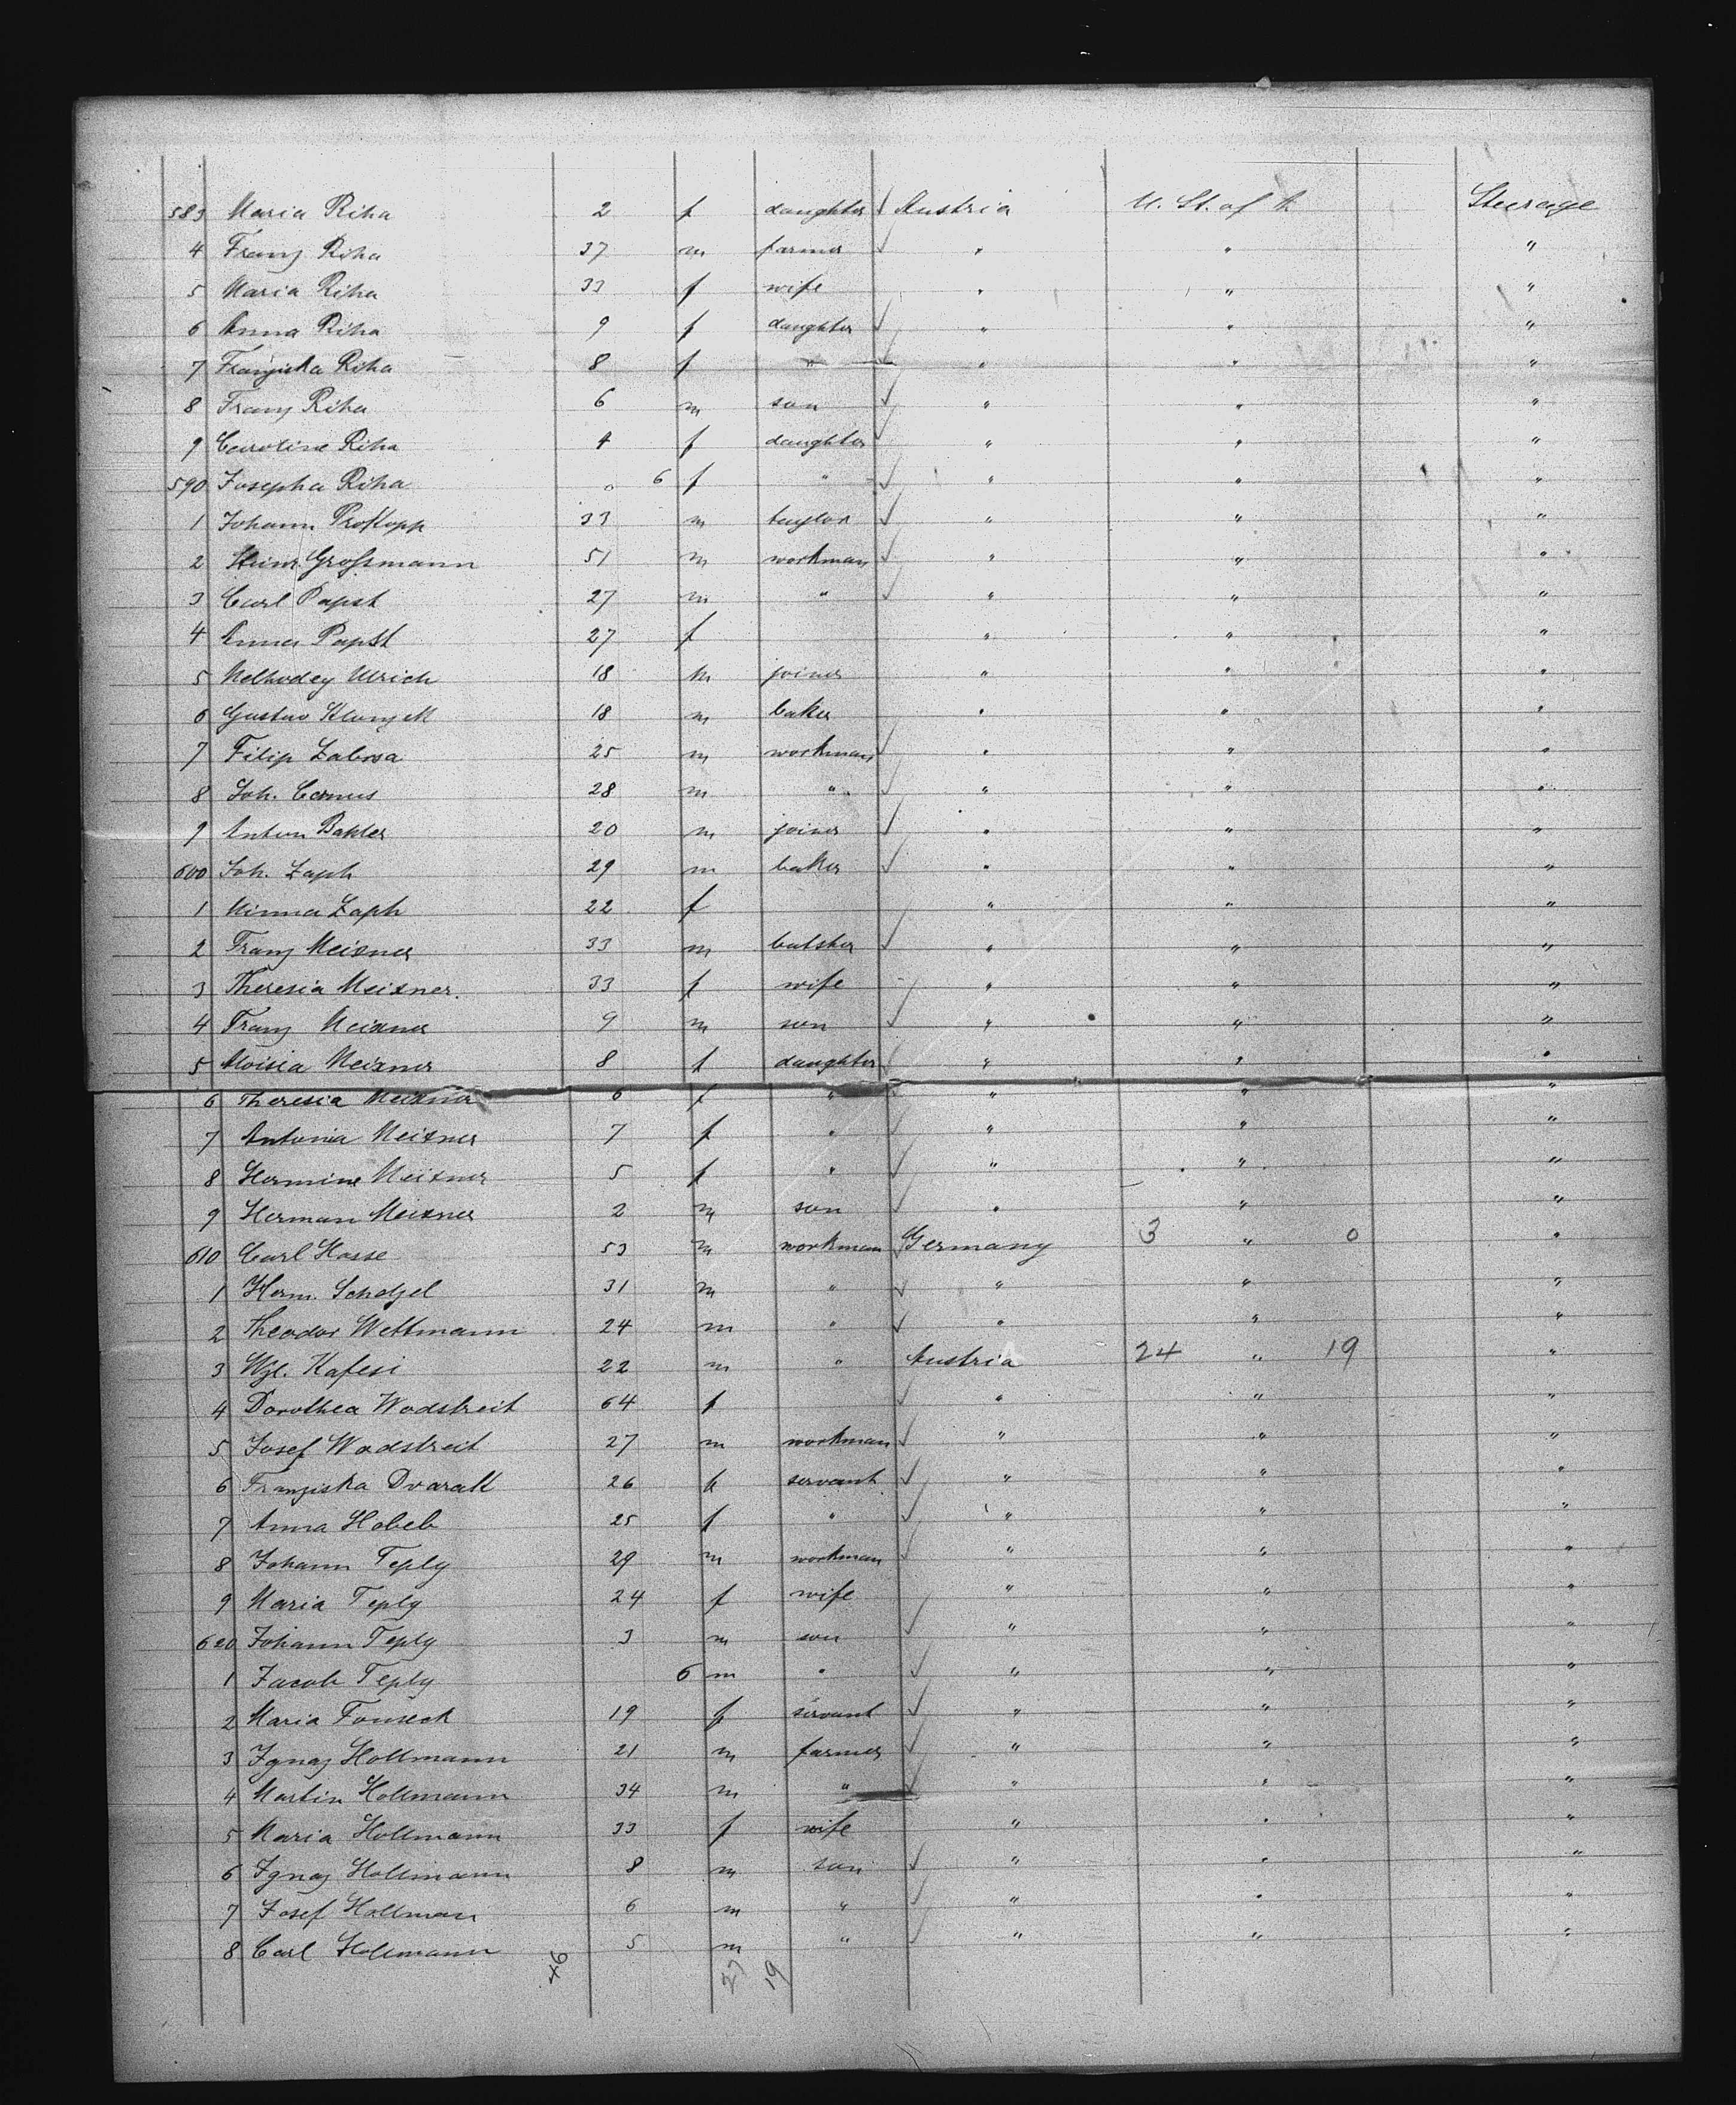 583 Maria Riha 2 f daughter ✓ Austria U. St. of A Steerage
4 Franz Riha 37 m farmer ✓ " " "
5 Maria Riha 33 f wife " " "
6 Anna Riha 9 f daughter ✓ " " "
7 Franziska Riha 8 f " ✓ " " "
8 Franz Riha 6 m son ✓ " " "
9 Caroline Riha 4 f daughter ✓ " " "
590 Josepha Riha " 6 f " ✓ " " "
1 Johann 33 m taylor ✓ " " "
2 Heinr. Großmann 51 m workman ✓ " " "
3 Carl Papst 27 m " ✓ " " "
4 Anna Papst 27 f " " "
5 Ulrich 18 m joiner " " "
6 Gustav 18 m baker " " "
7 Filip 25 m workman ✓ " " "
8 Joh. 28 m " ✓ " " "
9 Anton 20 m joiner ✓ " " "
600 Joh. Zaph 29 m baker ✓ " " "
1 Minna Zaph 22 f " " "
2 Franz Meixner 33 m butsher ✓ " " "
3 Theresia Meixner. 33 f wife " " "
4 Franz Meixner 9 m son ✓ " " "
5 Aloisia Meixner 8 f daughter ✓ " " "
6 Theresia Meixner 6 f " " " "
7 Antonia Meixner 7 f " ✓ " " "
8 Hermine Meixner 5 f " ✓ " " "
9 Herman Meixner 2 m son ✓ " " "
610 Carl Hasse 53 m workman ✓ Germany 3 " 0 "
1 Herm. Scholzel 31 m " ✓ " " "
2 Theodor Wettmann 24 m " ✓ " " "
3 Wzl. Kafesi 22 m " Austria 24 " 19 "
4 Dorothea Wodstreit 64 f ✓ " " "
5 Josef Wodstreit 27 m workman ✓ " " "
6 Franziska Dvorak 26 f servant ✓ " " "
7 Anna 25 f " ✓ " " "
8 Johann Teply 29 m workman ✓ " " "
9 Maria Teply 24 f wife " " "
620 Johann Teply 3 m son ✓ " " "
1 Jacob Teply 6 m " ✓ " " "
2 Maria 19 f servant ✓ " " "
3 Ignaz Hollmann 21 m farmer ✓ " " "
4 Martin Hollmann 34 m " ✓ " " "
5 Maria Hollmann 33 f wife " " "
6 Ignaz Hollmann 8 m son ✓ " " "
7 Josef Hollman 6 m " ✓ " " "
8 Carl Hollmann 5 m " ✓ " " "
46 27 19